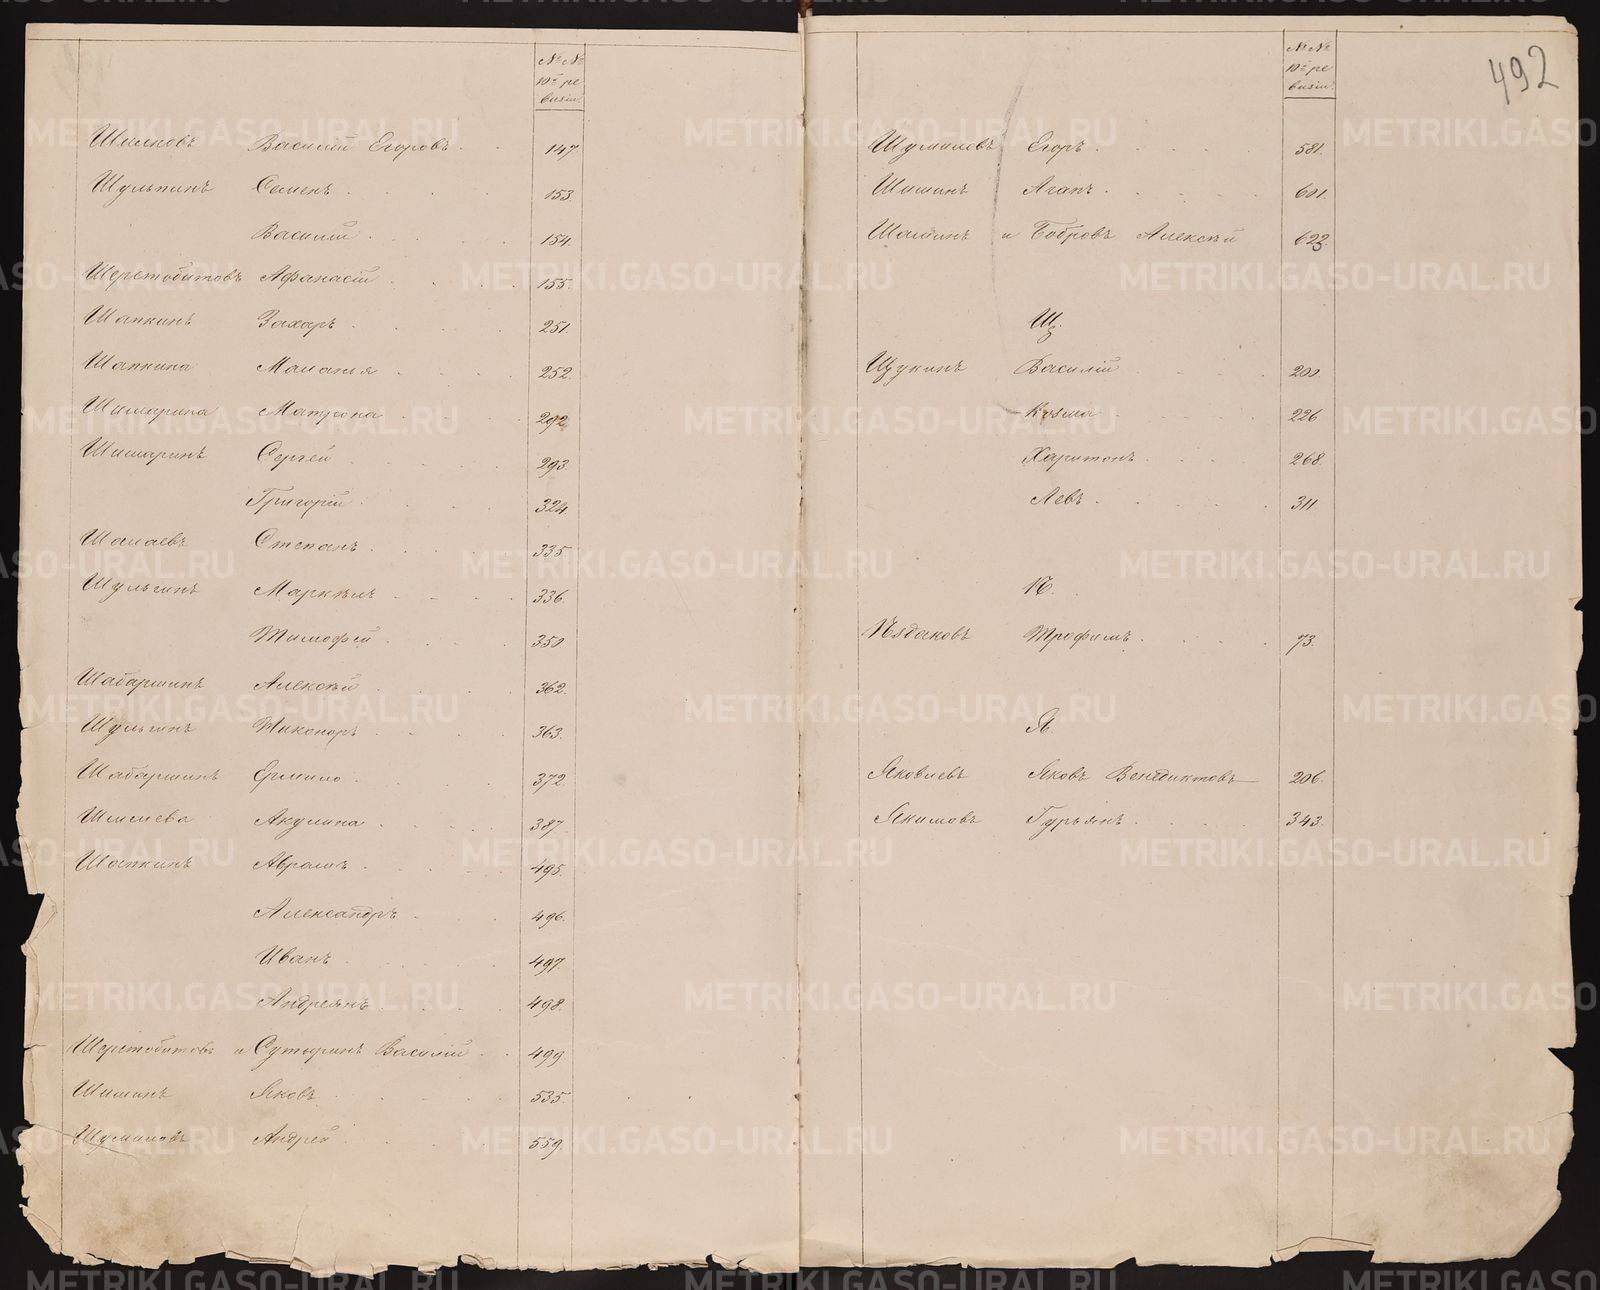 №№
10й ре
визіи.
Шилковъ Василій Егоровъ 147.
Шульпинъ Семенъ 153.
Василій 154.
Шерстобитовъ Афанасій 155.
Шапкинъ Захаръ 251.
Шапкина Маланья 252.
Шишарина Матрона 292.
Шишаринъ Сергей 293.
Григорій 324.
Шалаевъ Степанъ 335.
Шульгинъ Маркелъ 336.
Тимофей 350.
Шабаршинъ Алексѣй 362.
Шульгинъ Никоноръ 363.
Шабаршинъ Ермило 372.
Акулина 387.
Шапкинъ Аврамъ 495.
Александръ 496.
Иванъ 497.
Андреянъ 498.
Шерстобитовъ и Сутыринъ Василій 499
Шишинъ Яковъ 535.
Шумиловъ Андрей 559.
492
№№
10й ре
визіи.
Шумилевъ Егоръ 581.
Шишинъ Агапъ 601.
Шашинъ и Бобровъ Алексѣй 622.
Щ.
Щукинъ Василій 200.
Козма 226
Харитонъ 268.
Левъ 311.
Ѣ.
Трофимъ 73.
Я.
Яковлевъ Яковъ Венедиктовъ 206.
Якимовъ Гурьянъ 343.
METRIKI.GASO-URAL.RU